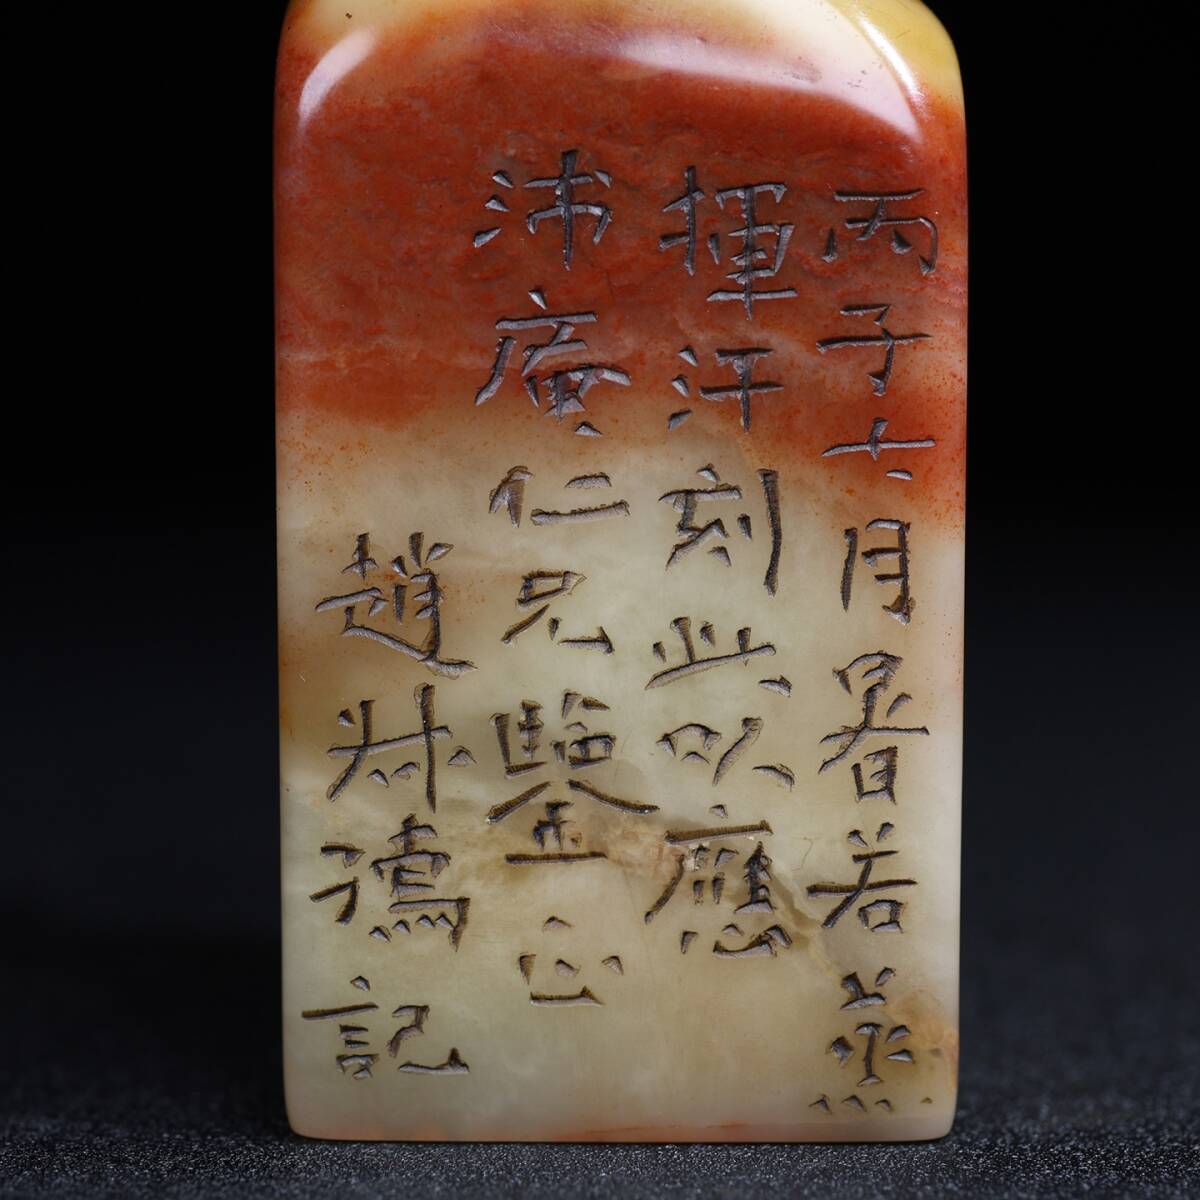 丙子六月暑若蒸
揮汗刻此以應
沛庵仁兄鑒正
趙叔孺記